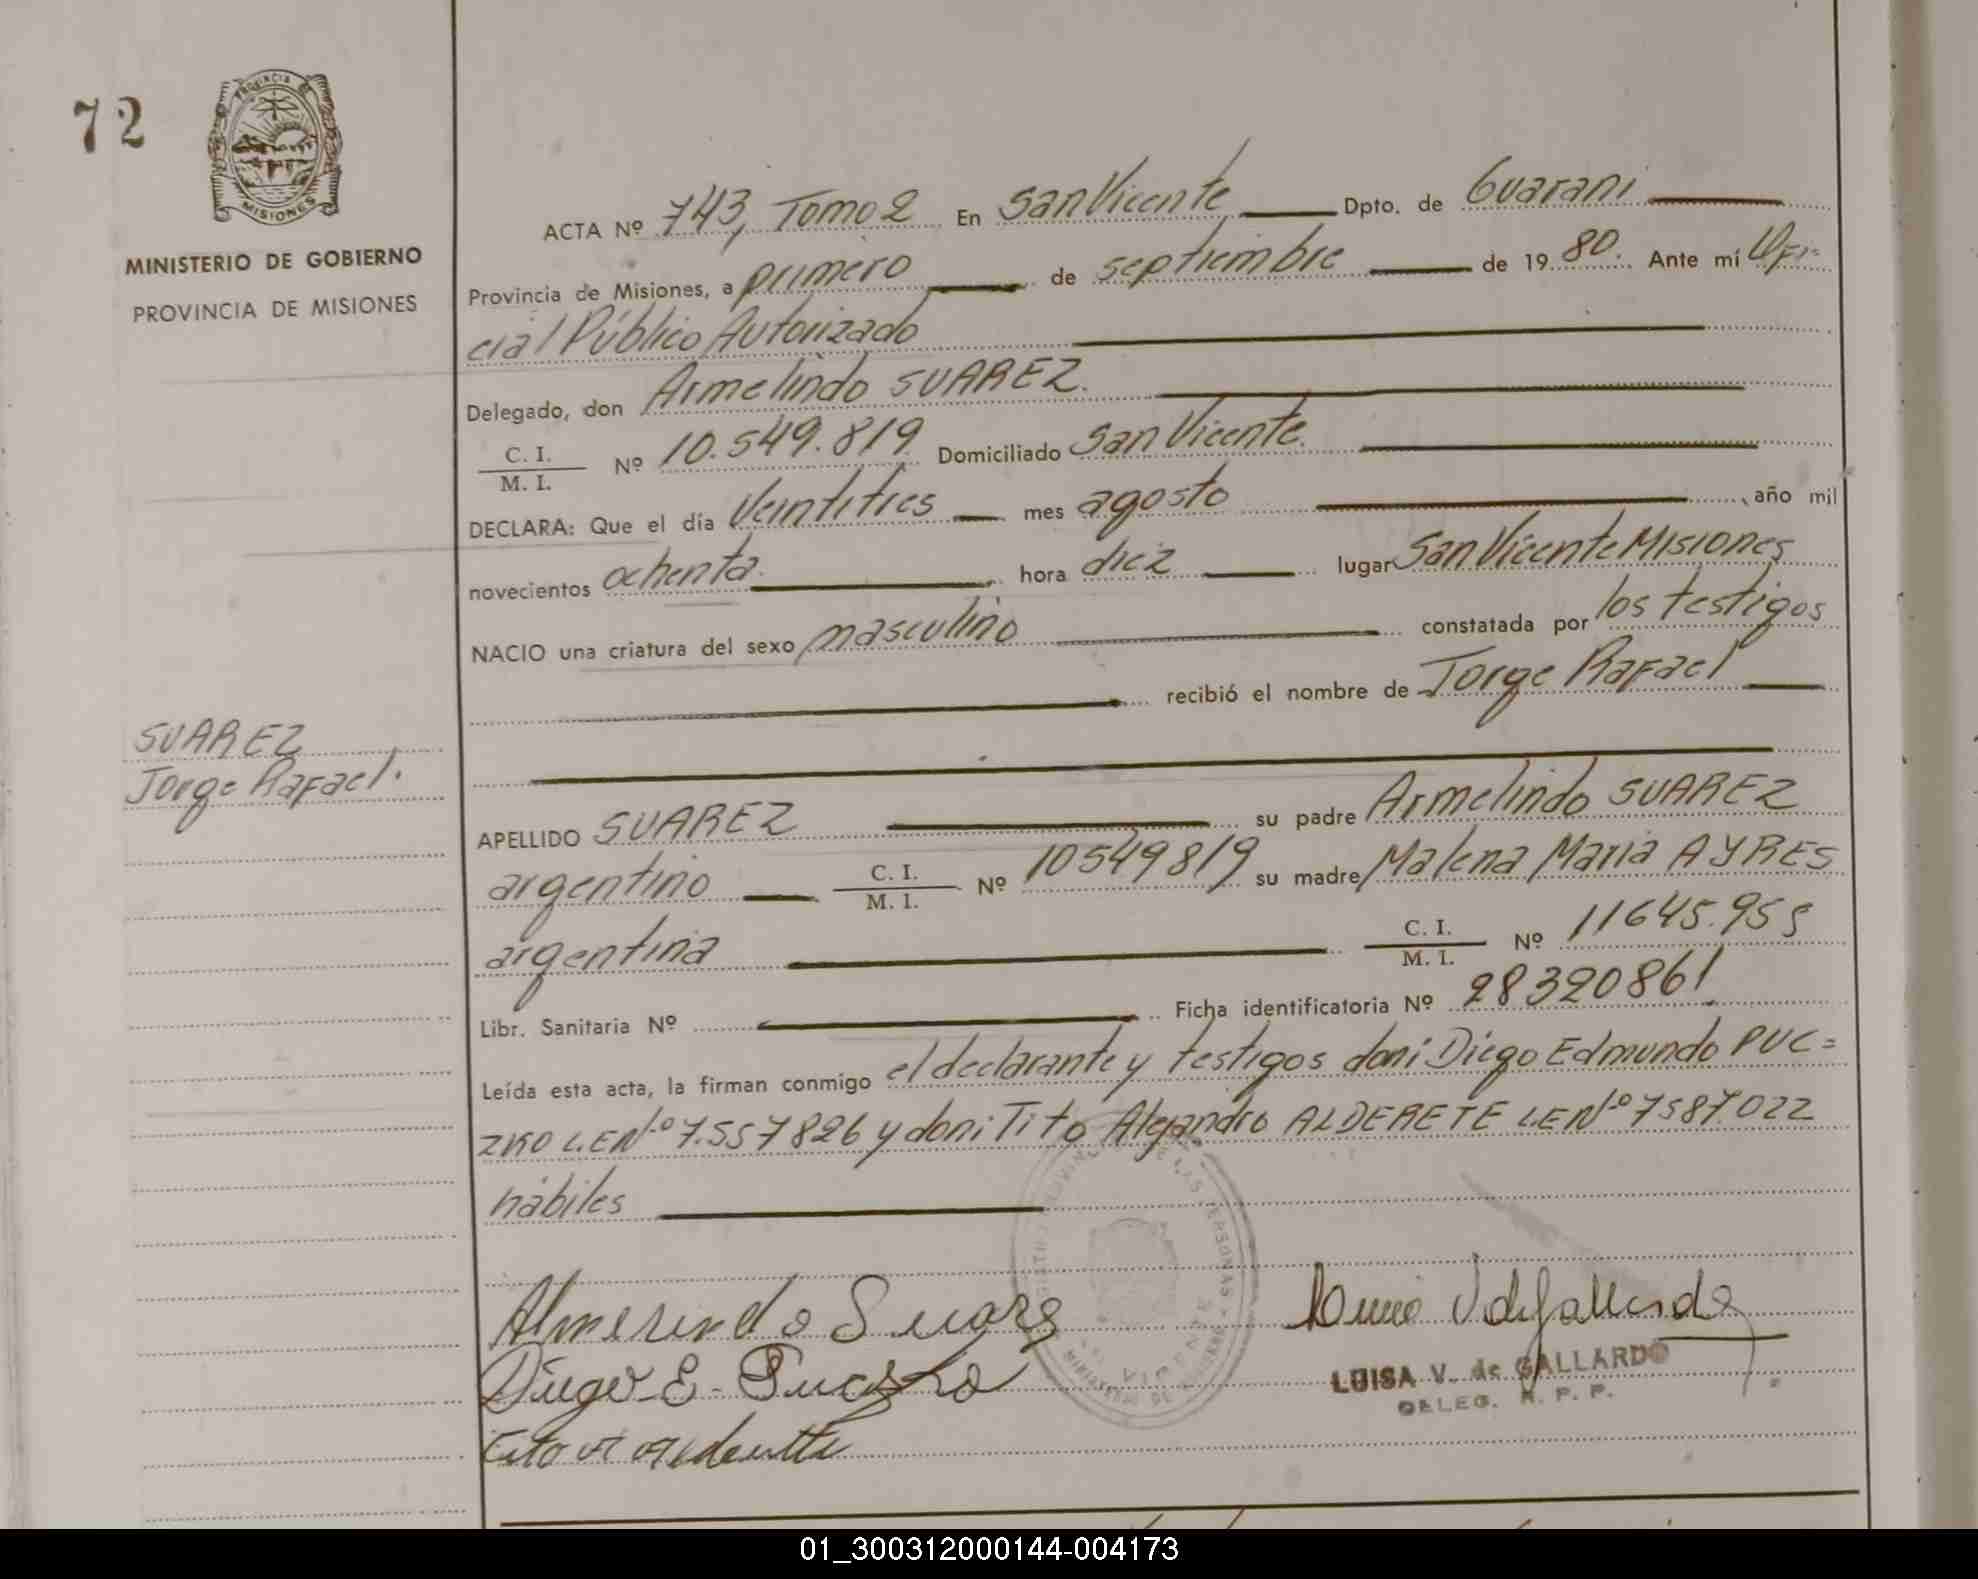 72
PROVINCIA
MISIONES
MINISTERIO DE GOBIERNO
PROVINCIA DE MISIONES
ACTA Nº 743, Tomo 2 En San Vicente Dpto. de Guarani
Provincia de Misiones, a primero de septiembre de 1980. Ante mí Ofi-
cial Público Autorizado
Delegado, don Armelindo SUAREZ.
C. I.
M. I. Nº 10.549.819 Domiciliado San Vicente.
DECLARA: Que el día Veintitres mes agosto, año mil
novecientos ochenta. hora diez lugar San Vicente Misiones
NACIO una criatura del sexo masculino constatada por los testigos
recibió el nombre de Jorge Rafael
SUAREZ
Jorge Rafael.
APELLIDO SUAREZ su padre Armelindo SUAREZ
argentino C. I.
M. I. Nº 10549819 su madre Malena Maria AYRES
argentina C. I.
M. I. Nº 11645.955
Libr. Sanitaria Nº Ficha identificatoria Nº 28320861.
Leída esta acta, la firman conmigo el declarante y testigos don: Diego Edmundo PUC=
ZKO L.E.Nº 7.557826 y don: Tito Alejandro ALDERETE L.E.Nº 7587.022
hábiles
Almerindo Suares
Diego E. Puczko
LUISA V. de GALLARDO
DELEG. R. P. P.
01_300312000144-004173